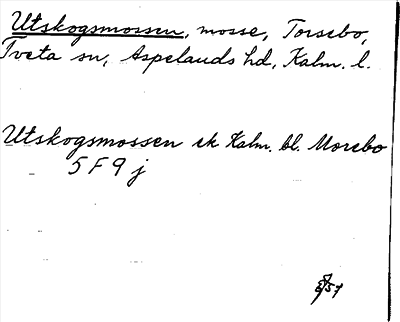 Utskogsmossen, mosse, Torsebo,
Tveta sn, Aspelands hd, Kalm. l.
Utskogsmossen ek Kalm. bl. Morebo
5 F 9 j